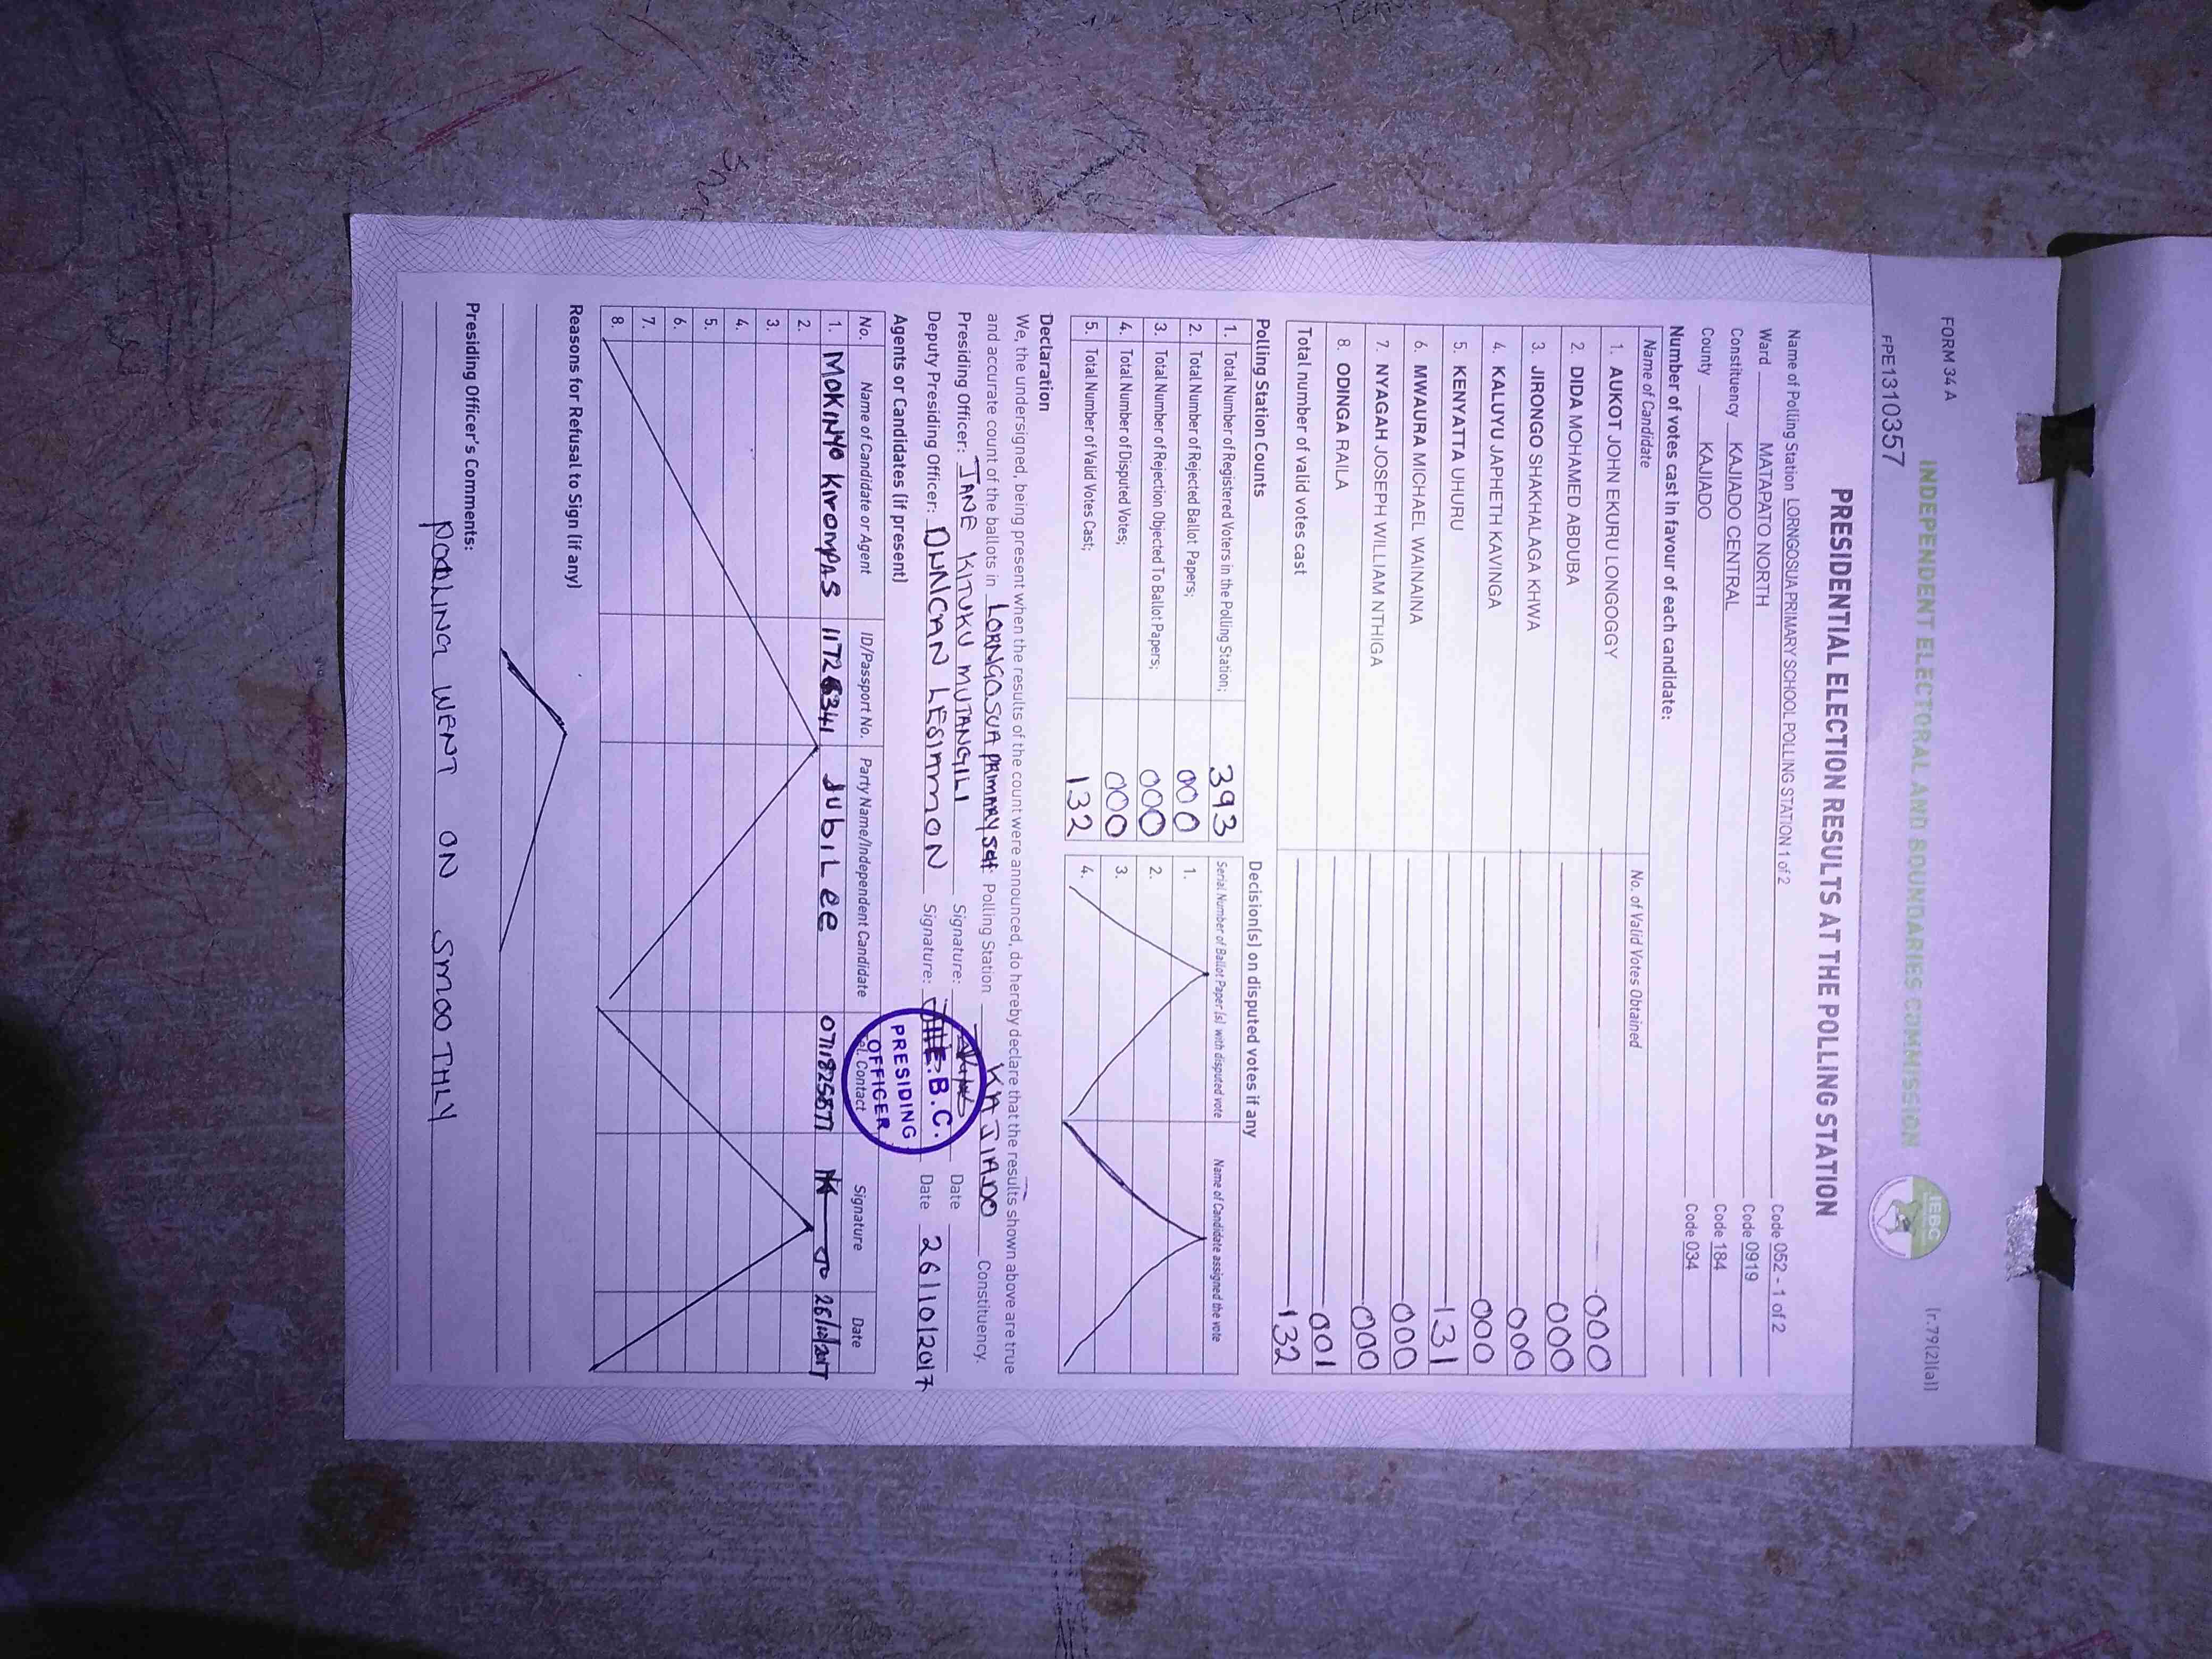 FORM 34 A
[r.79(2)(a)]
INDEPENDENT ELECTORAL AND BOUNDARIES COMMISSION
IEBC
FPE1310357
PRESIDENTIAL ELECTION RESULTS AT THE POLLING STATION
Name of Polling Station LORNGOSUA PRIMARY SCHOOL POLLING STATION 1 of 2 Code 052 - 1 of 2
Ward MATAPATO NORTH Code 0919
Constituency KAJIADO CENTRAL Code 184
County KAJIADO Code 034
Number of votes cast in favour of each candidate:
Name of Candidate No. of Valid Votes Obtained
1. AUKOT JOHN EKURU LONGOGGY 000
2. DIDA MOHAMED ABDUBA 000
3. JIRONGO SHAKHALAGA KHWA 000
4. KALUYU JAPHETH KAVINGA 000
5. KENYATTA UHURU 131
6. MWAURA MICHAEL WAINAINA 000
7. NYAGAH JOSEPH WILLIAM NTHIGA 000
8. ODINGA RAILA 001
Total number of valid votes cast 132
Polling Station Counts Decision(s) on disputed votes if any
1. Total Number of Registered Voters in the Polling Station; 393 Serial Number of Ballot Paper (s) with disputed vote Name of Candidate assigned the vote
2. Total Number of Rejected Ballot Papers; 000 1.
3. Total Number of Rejection Objected To Ballot Papers; 000 2.
4. Total Number of Disputed Votes; 000 3.
5. Total Number of Valid Votes Cast; 132 4.
Declaration
We, the undersigned, being present when the results of the count were announced, do hereby declare that the results shown above are true
and accurate count of the ballots in LORNGOSUA PRIMARY SCH Polling Station KAJIADO Constituency.
Presiding Officer: JANE KITUKU MUTANGILI Signature: Date
Deputy Presiding Officer: DUNCAN LESIMMON Signature: Date 26/10/2017
I.E.B.C.
PRESIDING
OFFICER
Agents or Candidates (if present)
No. Name of Candidate or Agent ID/Passport No. Party Name/Independent Candidate Tel. Contact Signature Date
1. MOKINYO KIROMPAS 11726341 JUBILEE 0711825877 26/10/2017
2.
3.
4.
5.
6.
7.
8.
Reasons for Refusal to Sign (if any)
Presiding Officer's Comments:
POOLING WENT ON SMOOTHLY